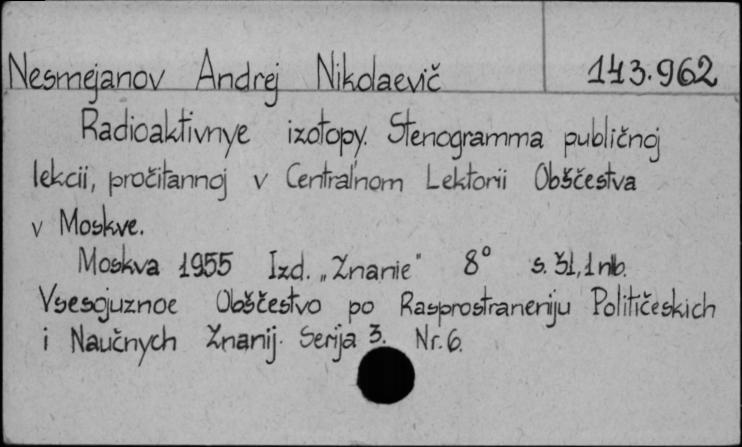 Nesmejanov Andrej Nikolaevič 143.962
Radioaktivnye izotopy. Stenogramma publičnoj
lekcii, pročitannoj v Central'nom Lektorii Obščestva
v Moskve.
Moskva 1955 Izd. „Znanie" 8° s. 31, 1 nlb.
Vsesojuznoe Obščestvo po Rasprostraneniju Političeskich
i Naučnych Znanij. Serija 3. Nr. 6.